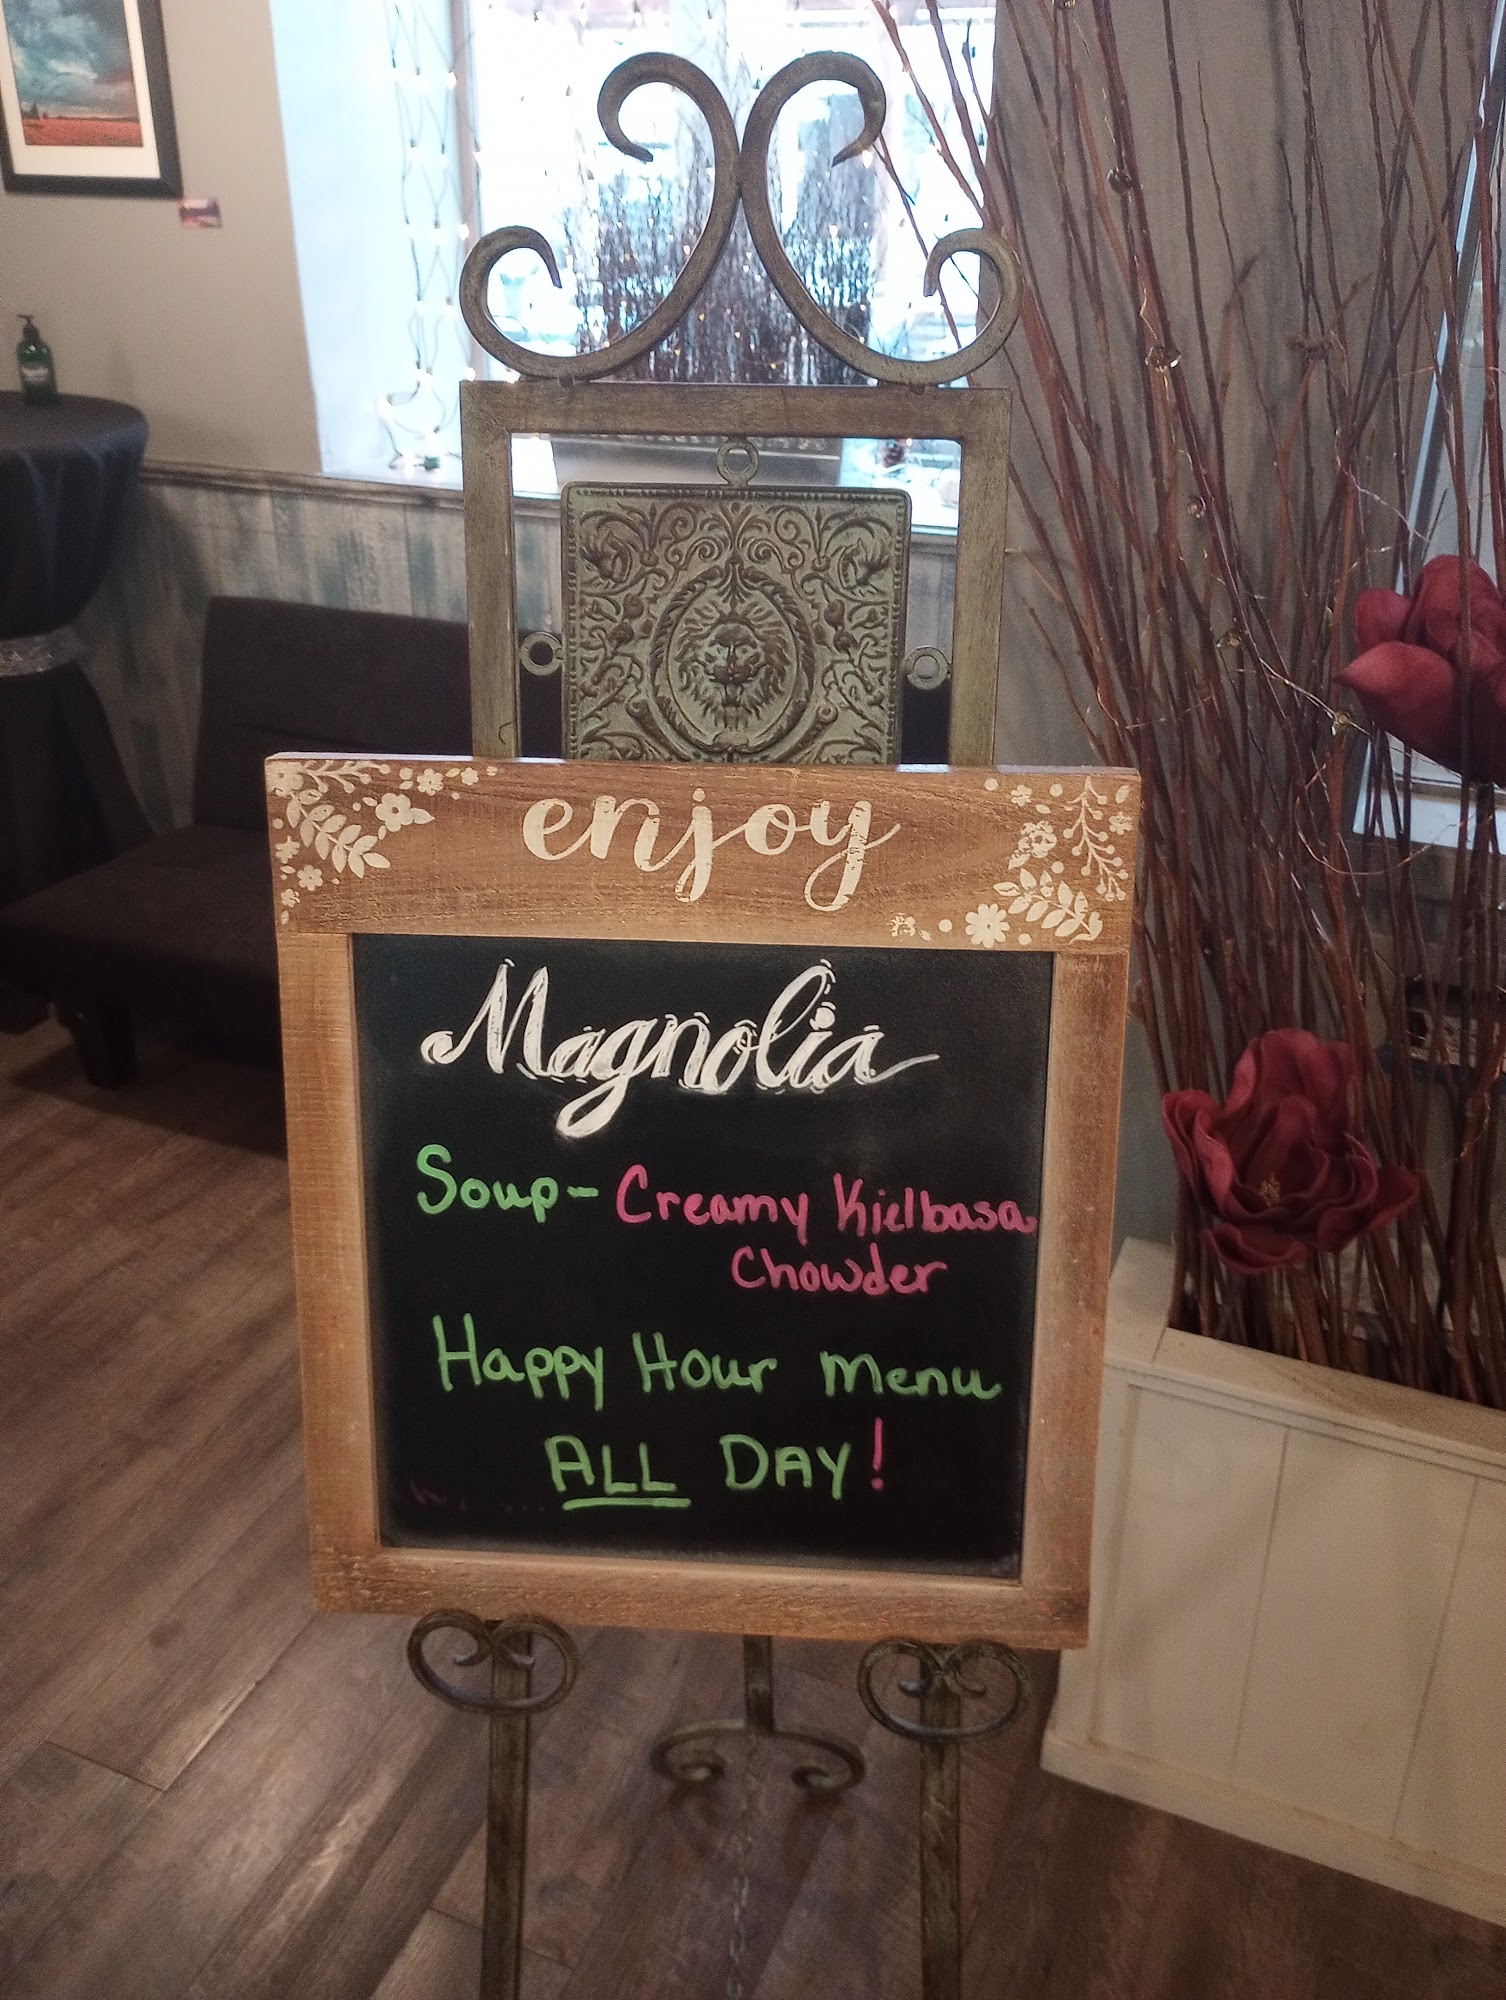 enjoy
Magnolia
Soup - Creamy Kielbasa
Chowder
Happy Hour Menu
ALL DAY!